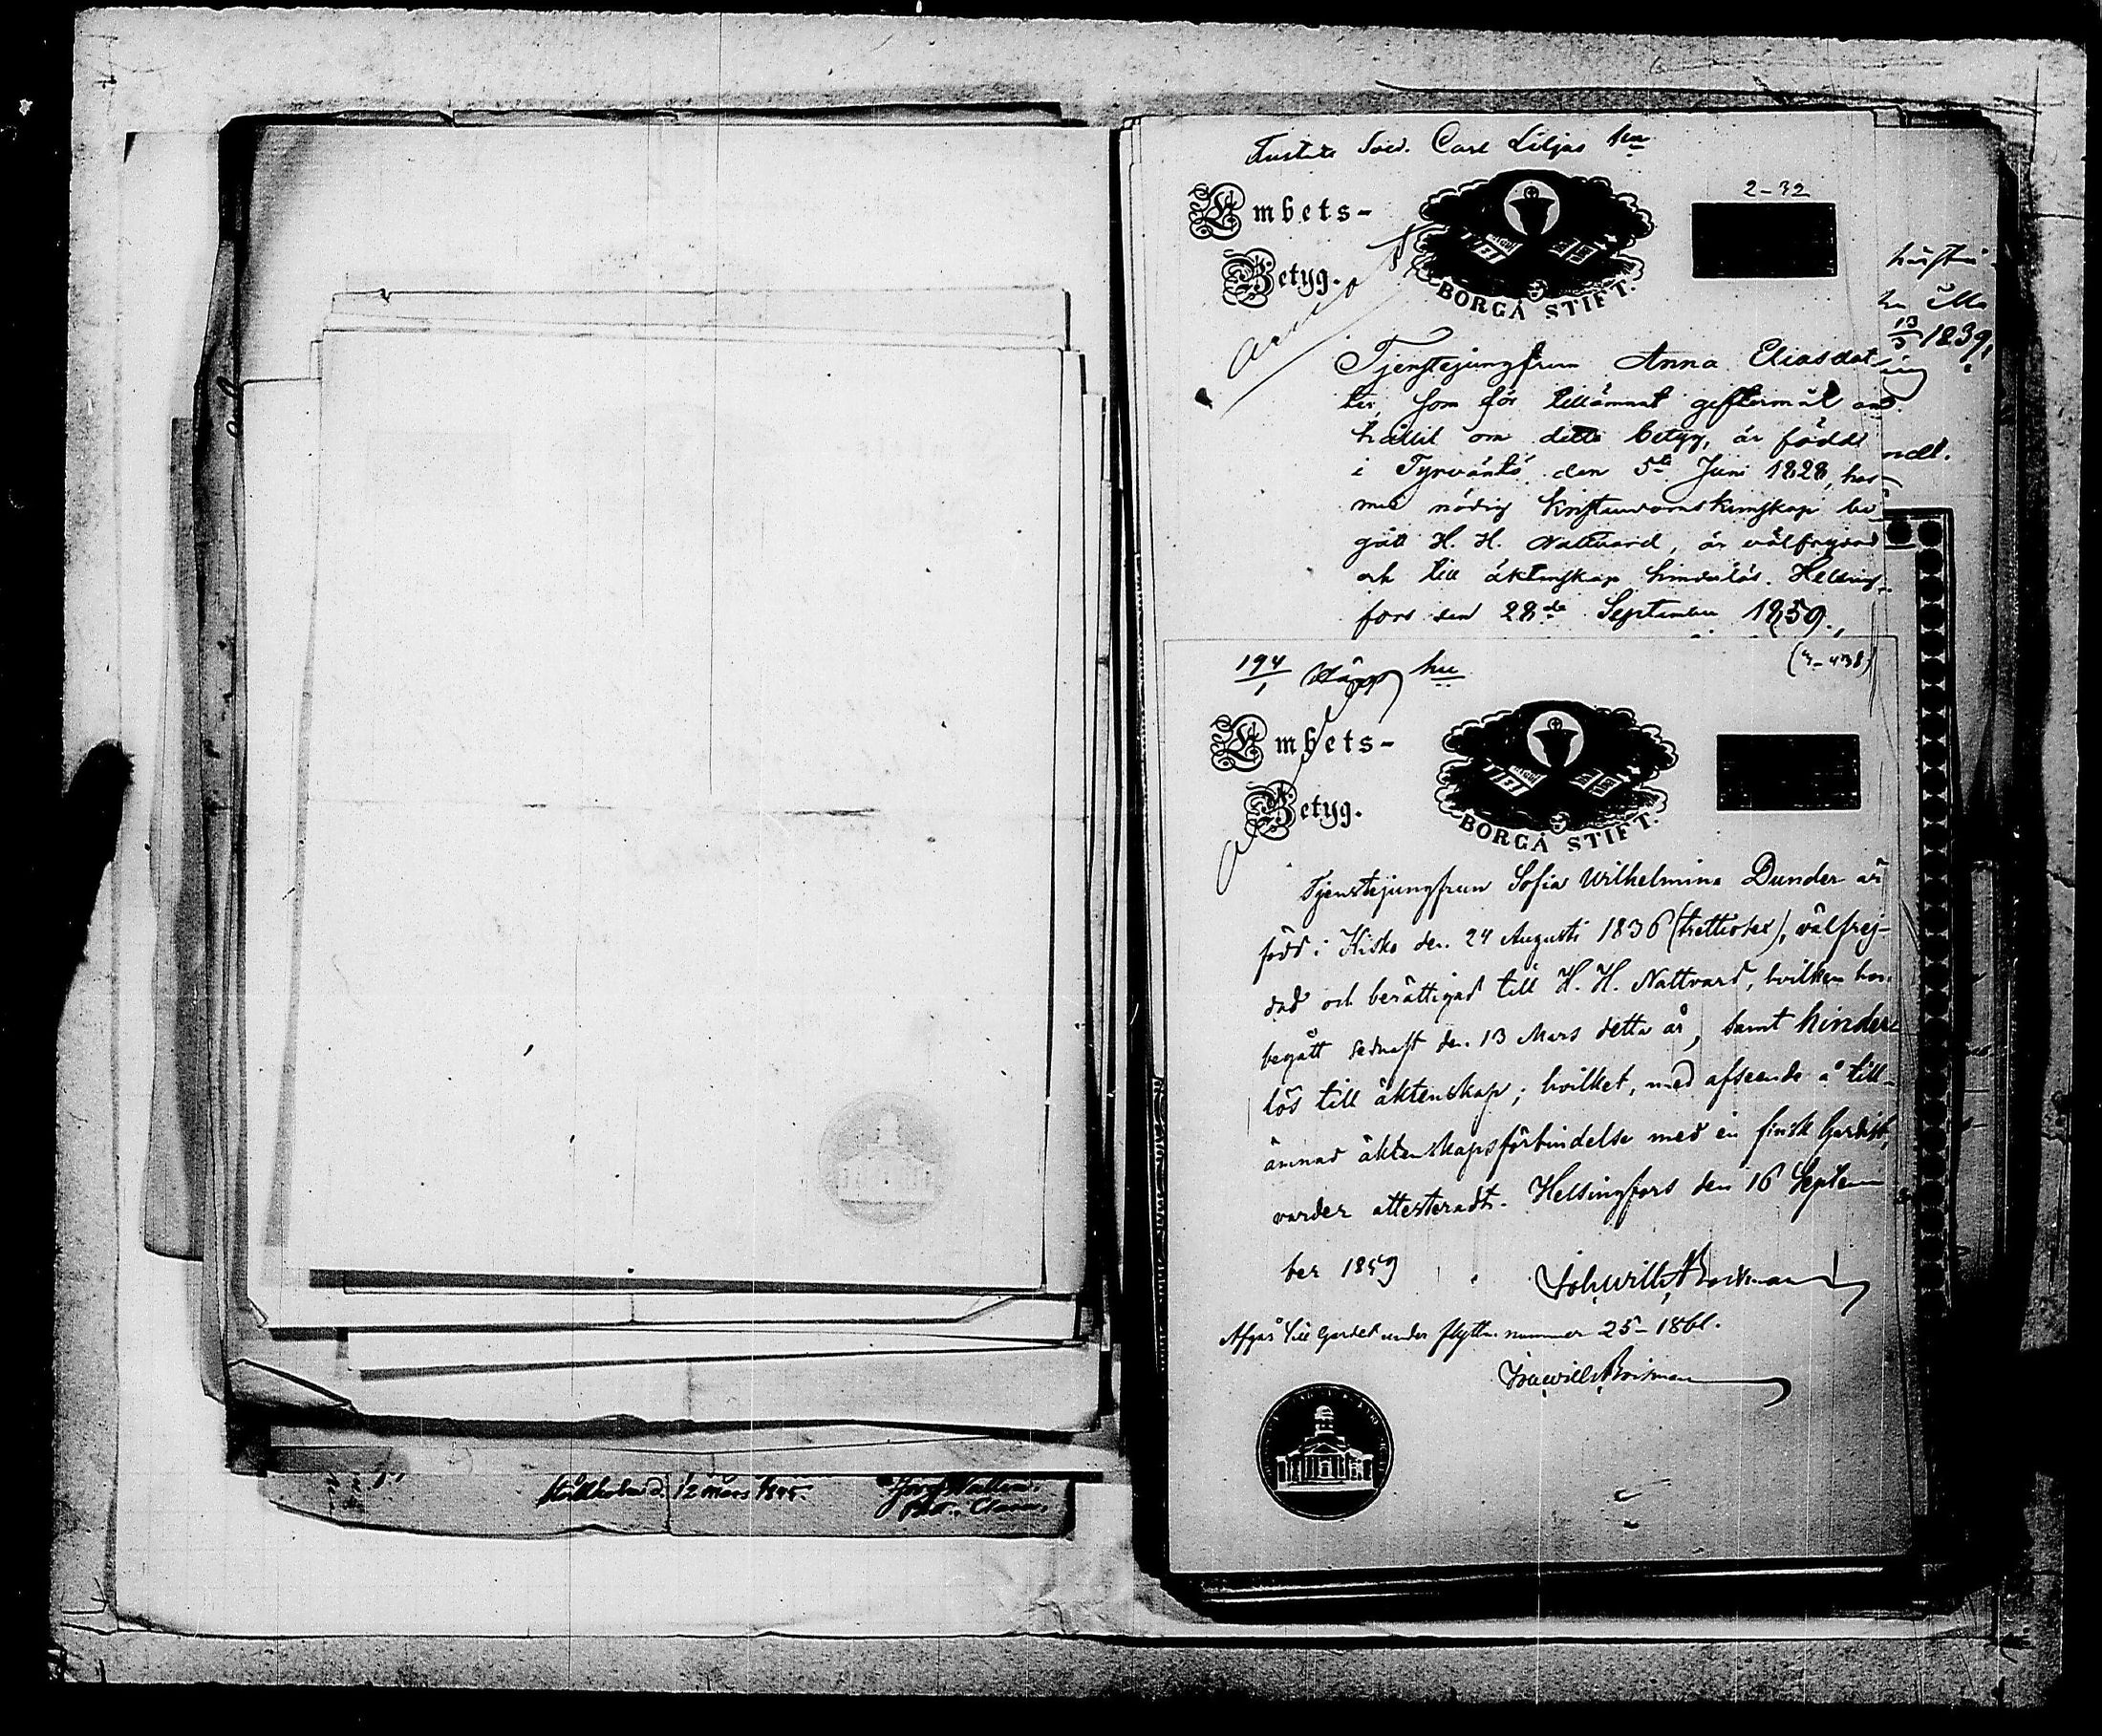 Carl Liljas hu
2-32
Embets-
Betyg.
BORGÅ STIFT.
Tjenstejungfrun Anna Eliasdot
ter, som för tillämnat giftermål an-
hållit om detta betyg, är född
i Tyrväntö den 5te Juni 1828, har
med nödig kristendomskunskap be
gått H. H. Nattvard, är välfrejdad
och till äktenskap hinderlös. Helsing-
fors den 28de September 1859.
1839,
194
1
hu
(3-438)
Embets-
Betyg.
BORGÅ STIFT.
Tjenstejungfrun Sofia Wilhelmina Dunder är
född i Kisko den 24 Augusti 1836 (trettiosex), välfrej-
dad och berättigad till H. H. Nattvard, hvilken hon
begått sednast den 13 Mars detta år, samt hinder-
lös till äktenskap; hvilket, med afseende å till-
ämnad äktenskapsförbindelse med en finsk Gardist,
varder attesteradt. Helsingfors den 16 Septem
ber 1859
Joh. Wilh. Boisman
Afgår till Gardet under flyttn. nummer 25-1861.
Joh. Wilh. Boisman
12 mars 1845.